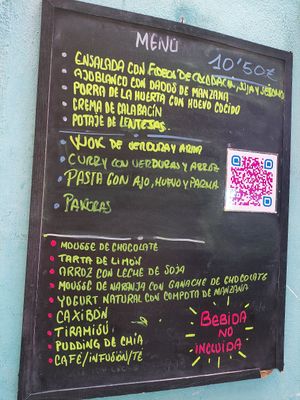 MENÚ
10'50€
ENSALADA CON FIDEOS DE CALABACÍN, SOJA Y SÉSAMO
AJOBLANCO CON DADOS DE MANZANA
PORRA DE LA HUERTA CON HUEVO COCIDO
CREMA DE CALABACÍN
POTAJE DE LENTEJAS
WOK DE VERDURA Y ARROZ
CURRY CON VERDURAS Y ARROZ
PASTA CON AJO, HUEVO Y PARMA
PAKORAS
MOUSSE DE CHOCOLATE
TARTA DE LIMÓN
ARROZ CON LECHE DE SOJA
MOUSSE DE NARANJA CON GANACHE DE CHOCOLATE
YOGURT NATURAL CON COMPOTA DE MANZANA
CAXIBÓN
TIRAMISÚ
PUDDING DE CHÍA
CAFÉ/INFUSIÓN/TÉ
BEBIDA
NO
INCLUIDA